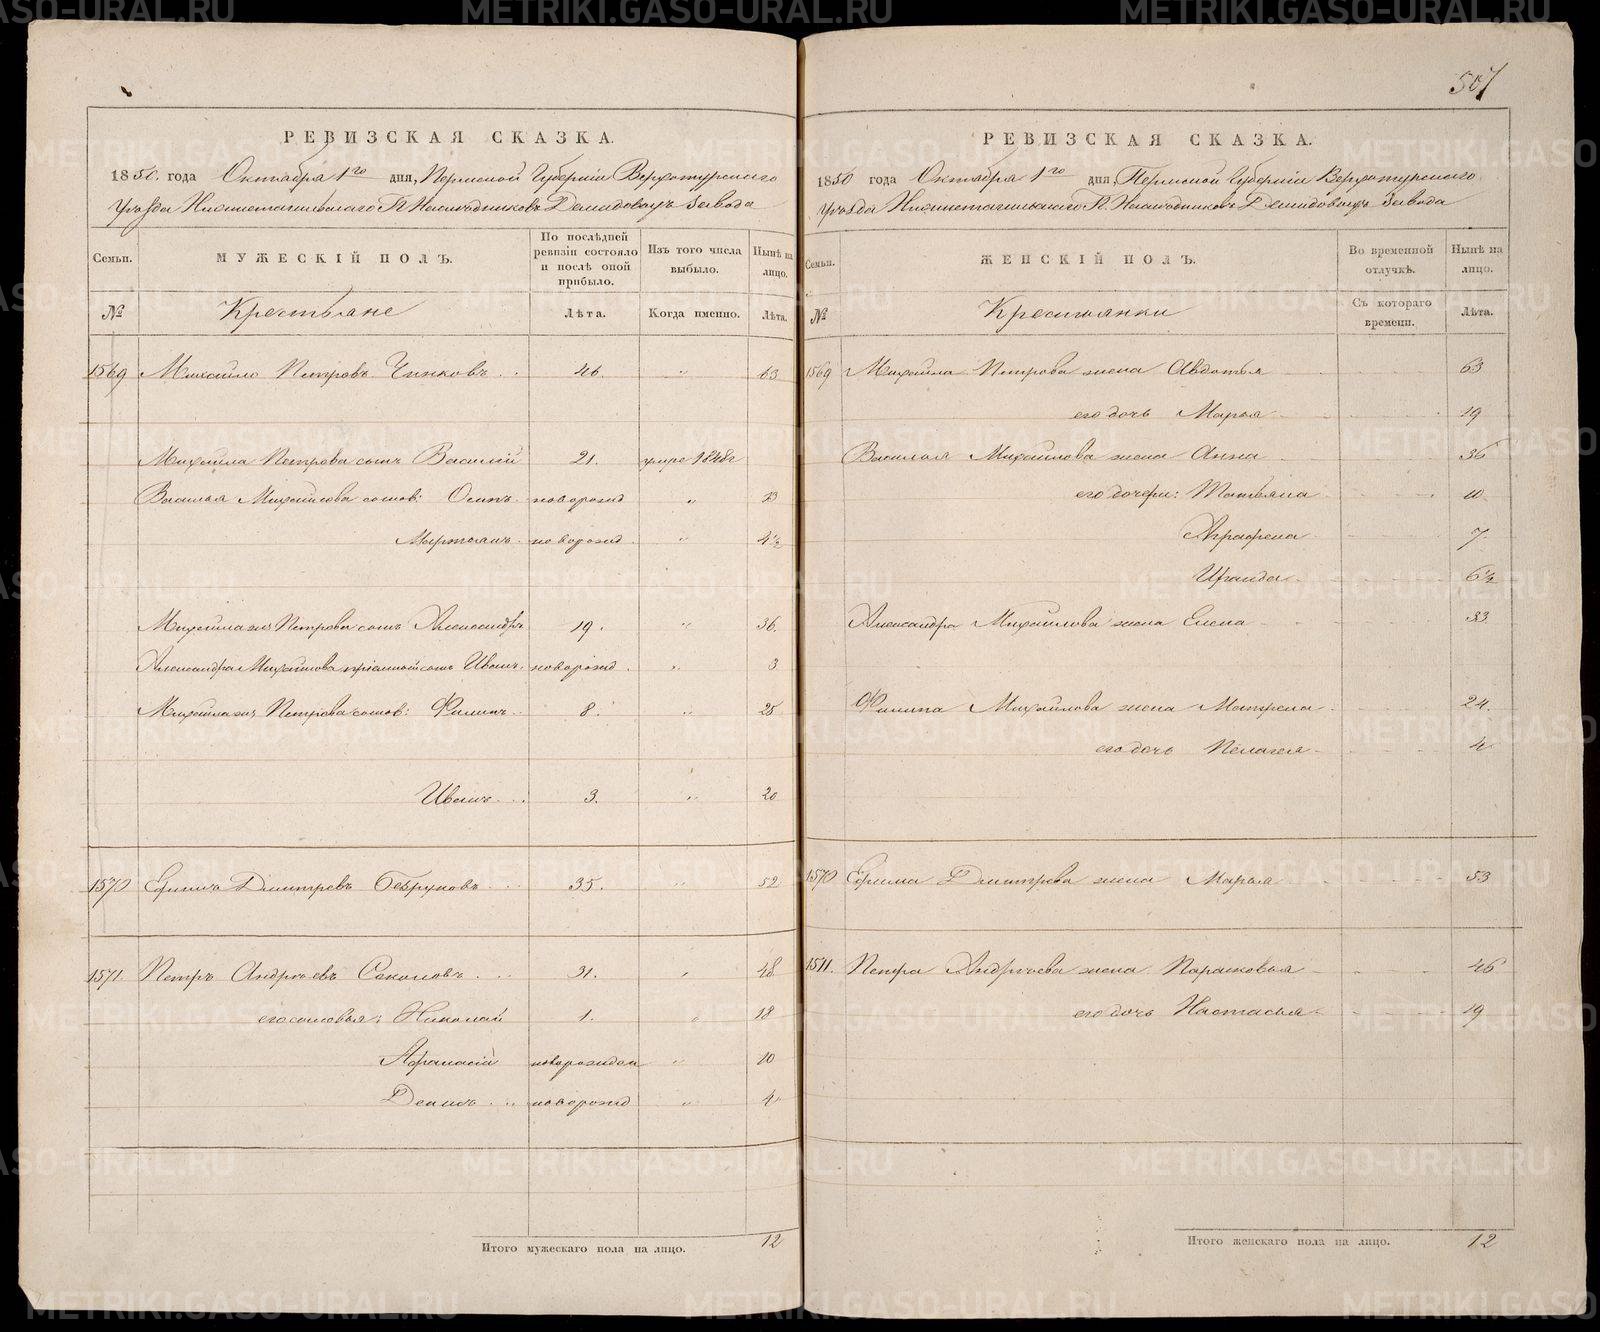 507
РЕВИЗСКАЯ СКАЗКА.
1850. года Октября 1го дня, Пермской Губерніи Верхотурскаго
Уѣзда Нижнетагильскаго Г. Наслѣдниковъ Демидовыхъ завода
Семьи. МУЖЕСКІЙ ПОЛЪ. По послѣдней ревизіи состояло и послѣ оной прибыло. Изъ того числа выбыло. Нынѣ на лицо.
№ Крестьяне Лѣта. Когда именно. Лѣта.
1569 Михайло Петровъ Чинковъ 46. " 63
Михайла Петрова сынъ Василій 21. умре 1848г
Василья Михайлова сынов: Осипъ новорожд " 13
Мартынъ новорожд " 4½
Михайла же Петрова сынъ Александръ 19. " 36.
Александра Михайлова пріемный сынъ Иванъ новорожд. " 3
Михайла же Петрова сынов: Филипъ 8. " 25
Иванъ 3. " 20
1570 Ефимъ Дмитревъ 35. " 52
1571. Петръ Андреевъ Соколовъ 31. " 48
его сыновья: Николай 1. " 18
Афанасій новорожден " 10
Денисъ новорожд " 4
Итого мужескаго пола на лицо. 12
РЕВИЗСКАЯ СКАЗКА.
1850 года Октября 1го дня, Пермской Губерніи Верхотурскаго
Уѣзда Нижнетагильскаго Г. Наслѣдниковъ Демидовыхъ завода
Семьи. ЖЕНСКІЙ ПОЛЪ. Во временной отлучкѣ. Нынѣ на лицо.
№ Крестьянки Съ котораго времени. Лѣта.
1569 Михайла Петрова жена Авдотья 63
его дочь Марья 19
Василья Михайлова жена Анна 36
его дочери: Татьяна 10
Аграфена 7
Ираида 6½
Александра Михайлова жена Елена 33
Филипа Михайлова жена Матрена 24
его дочь Пелагея 4
1570 Ефима Дмитрева жена Марья 53
1571. Петра Андреева жена Парасковья 46
его дочь Настасья 19
Итого женскаго пола на лицо. 12
METRIKI.GASO-URAL.RU